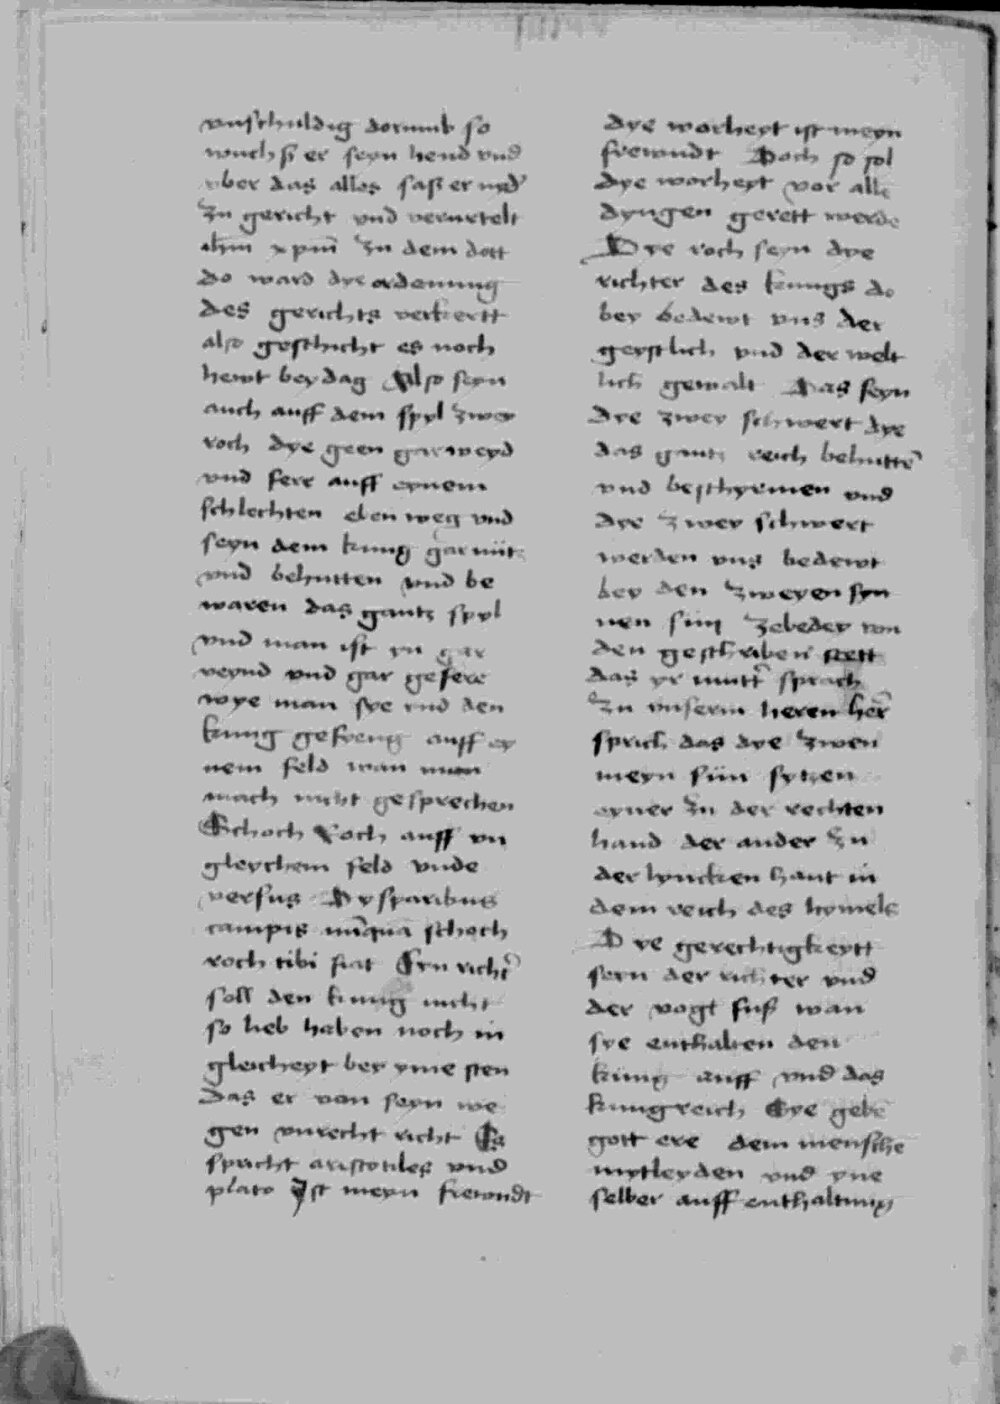 vnschuldig dorumb so
wuchs er seyn hend vnd
vber das alles sass er nyd'
zu gericht vnd verurtelt
ihm xpm zu dem dott
do ward dye ordenung
des gerichts verkertt
also geschicht es noch
hewt bey dag Also seyn
auch auff dem spyl zwey
roch dye geen gar weyd
vnd ferr auff eynem
schlechten eben weg vnd
seyn dem kung gar nutz
vnd behutten vnd be
waren das gantz spyl
vnd man ist yn gar
veynd vnd gar gefere
wye man sye vnd den
kung gefreng auff ey
nem feld wan man
mach nicht gesprechen
Schoch Roch auff vn
gleychem feld vnde
versus Dysparibus
campis nu̅qua̅ schoch
roch tibi fiat Eyn richt'
soll den kung nicht
so lieb haben noch in
gleicheyt bey yme sten
das er von seyn we
gen vnrecht richt Es
spricht aristotiles vnd
plato Ist meyn frewndt
dye worheyt ist meyn
frewndt Doch so sol
dye worheyt vor alle
dyngen gerett werde
Dye roch seyn dye
richter des kungs do
bey bedewt vns der
geystlich vnd der welt
lich gewalt Das seyn
dye zwey schwert dye
das gantz reich behutte̅
vnd beschyrmen vnd
dye zwey schwert
werden vns bedewt
bey den zweyen syn
nen zebedey von
den geschriben stett
das yr mutt' sprach
zu vnserm heren her
sprich das dye zwen
meyn sün sytzen
eyner zu der rechten
hand der ander zu
der lyncken hant in
dem reich des hymels
Dye gerechtigkeytt
seyn der richter vnd
der vogt fuss wan
sye enthalten den
kung auff vnd das
kungreich Sye gebe̅
gott ere dem mensche
mytleyden vnd yne
selber auff enthaltung